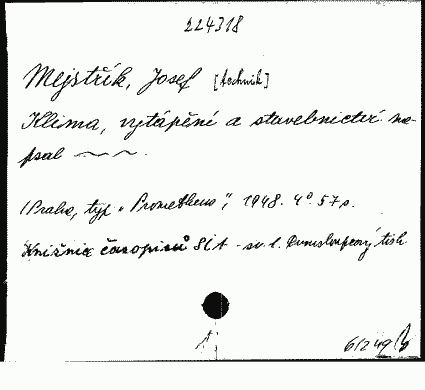 224318
Mejstřík, Josef [technik]
Klima, vytápění a stavebnictví na-
psal ~~~.
(Praha, typ. „Prometheus", 1948. 4° 57 s.
Knižnice časopisu SIA - sv. 1. Dvousloupcový tisk